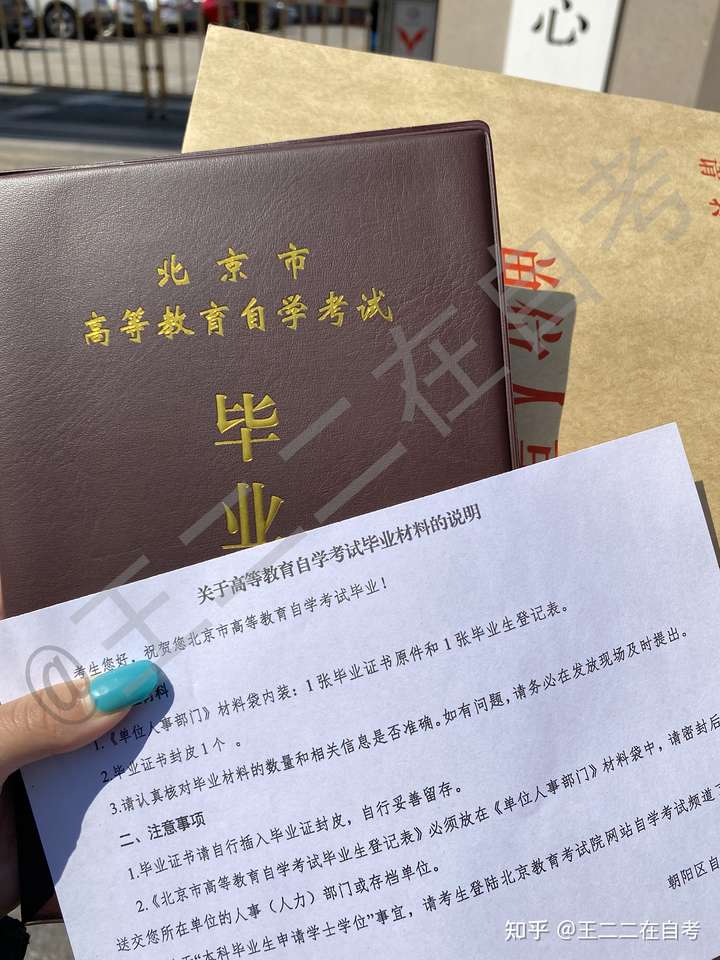 心
北京市
高等教育自学考试
毕
业
关于高等教育自学考试毕业材料的说明
考生您好，祝贺您北京市高等教育自学考试毕业！
材料
1.《单位人事部门》材料袋内装：1张毕业证书原件和1张毕业生登记表。
2.毕业证书封皮1个 。
3.请认真核对毕业材料的数量和相关信息是否准确。如有问题，请务必在发放现场及时提出。
二、注意事项
1.毕业证书请自行插入毕业证封皮，自行妥善留存。
2.《北京市高等教育自学考试毕业生登记表》必须放在《单位人事部门》材料袋中，请密封后
送交您所在单位的人事（人力）部门或存档单位。
“本科毕业生申请学士学位”事宜，请考生登陆北京教育考试院网站自学考试频道
朝阳区自
@王二二在自考
知乎 @王二二在自考